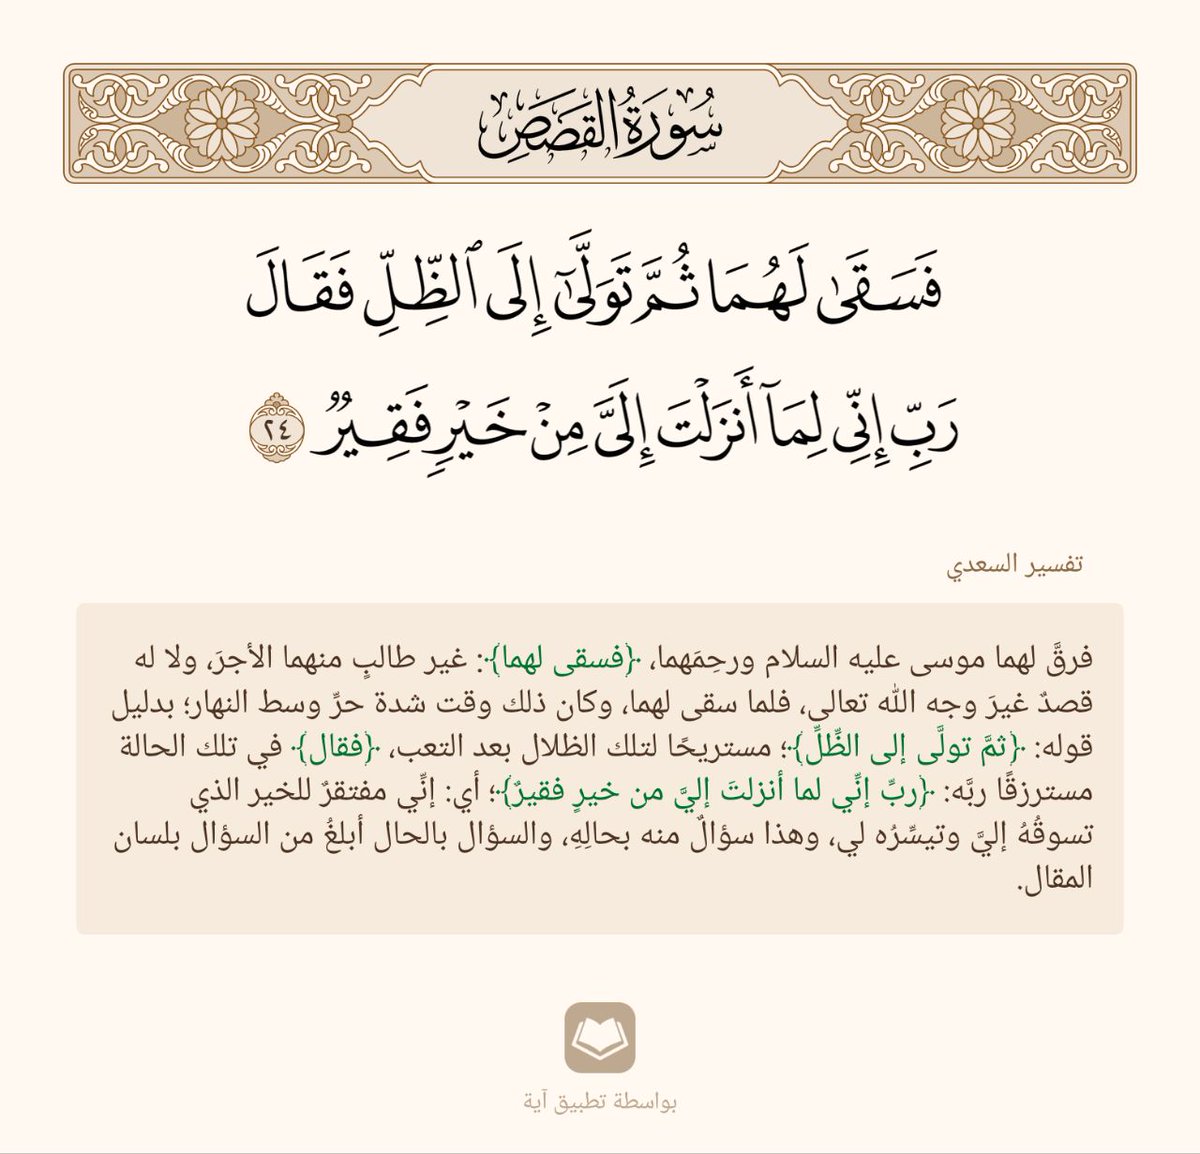 سُورَةُ القَصَصِ
فَسَقَىٰ لَهُمَا ثُمَّ تَوَلَّىٰٓ إِلَى ٱلظِّلِّ فَقَالَ
رَبِّ إِنِّي لِمَآ أَنزَلۡتَ إِلَيَّ مِنۡ خَيۡرٖ فَقِيرٞ ٢٤
تفسير السعدي
فرقَّ لهما موسى عليه السلام ورحِمَهما، ﴿فسقى لهما﴾: غير طالبٍ منهما الأجرَ، ولا له
قصدٌ غيرَ وجه الله تعالى، فلما سقى لهما، وكان ذلك وقت شدة حرِّ وسط النهار؛ بدليل
قوله: ﴿ثمَّ تولَّى إلى الظِّلِّ﴾؛ مستريحًا لتلك الظلال بعد التعب، ﴿فقال﴾ في تلك الحالة
مسترزقًا ربَّه: ﴿ربِّ إنِّي لما أنزلتَ إليَّ من خيرٍ فقيرٌ﴾؛ أي: إنِّي مفتقرٌ للخير الذي
تسوقُهُ إليَّ وتيسِّرُه لي، وهذا سؤالٌ منه بحالِهِ، والسؤال بالحال أبلغُ من السؤال بلسان
المقال.
بواسطة تطبيق آية